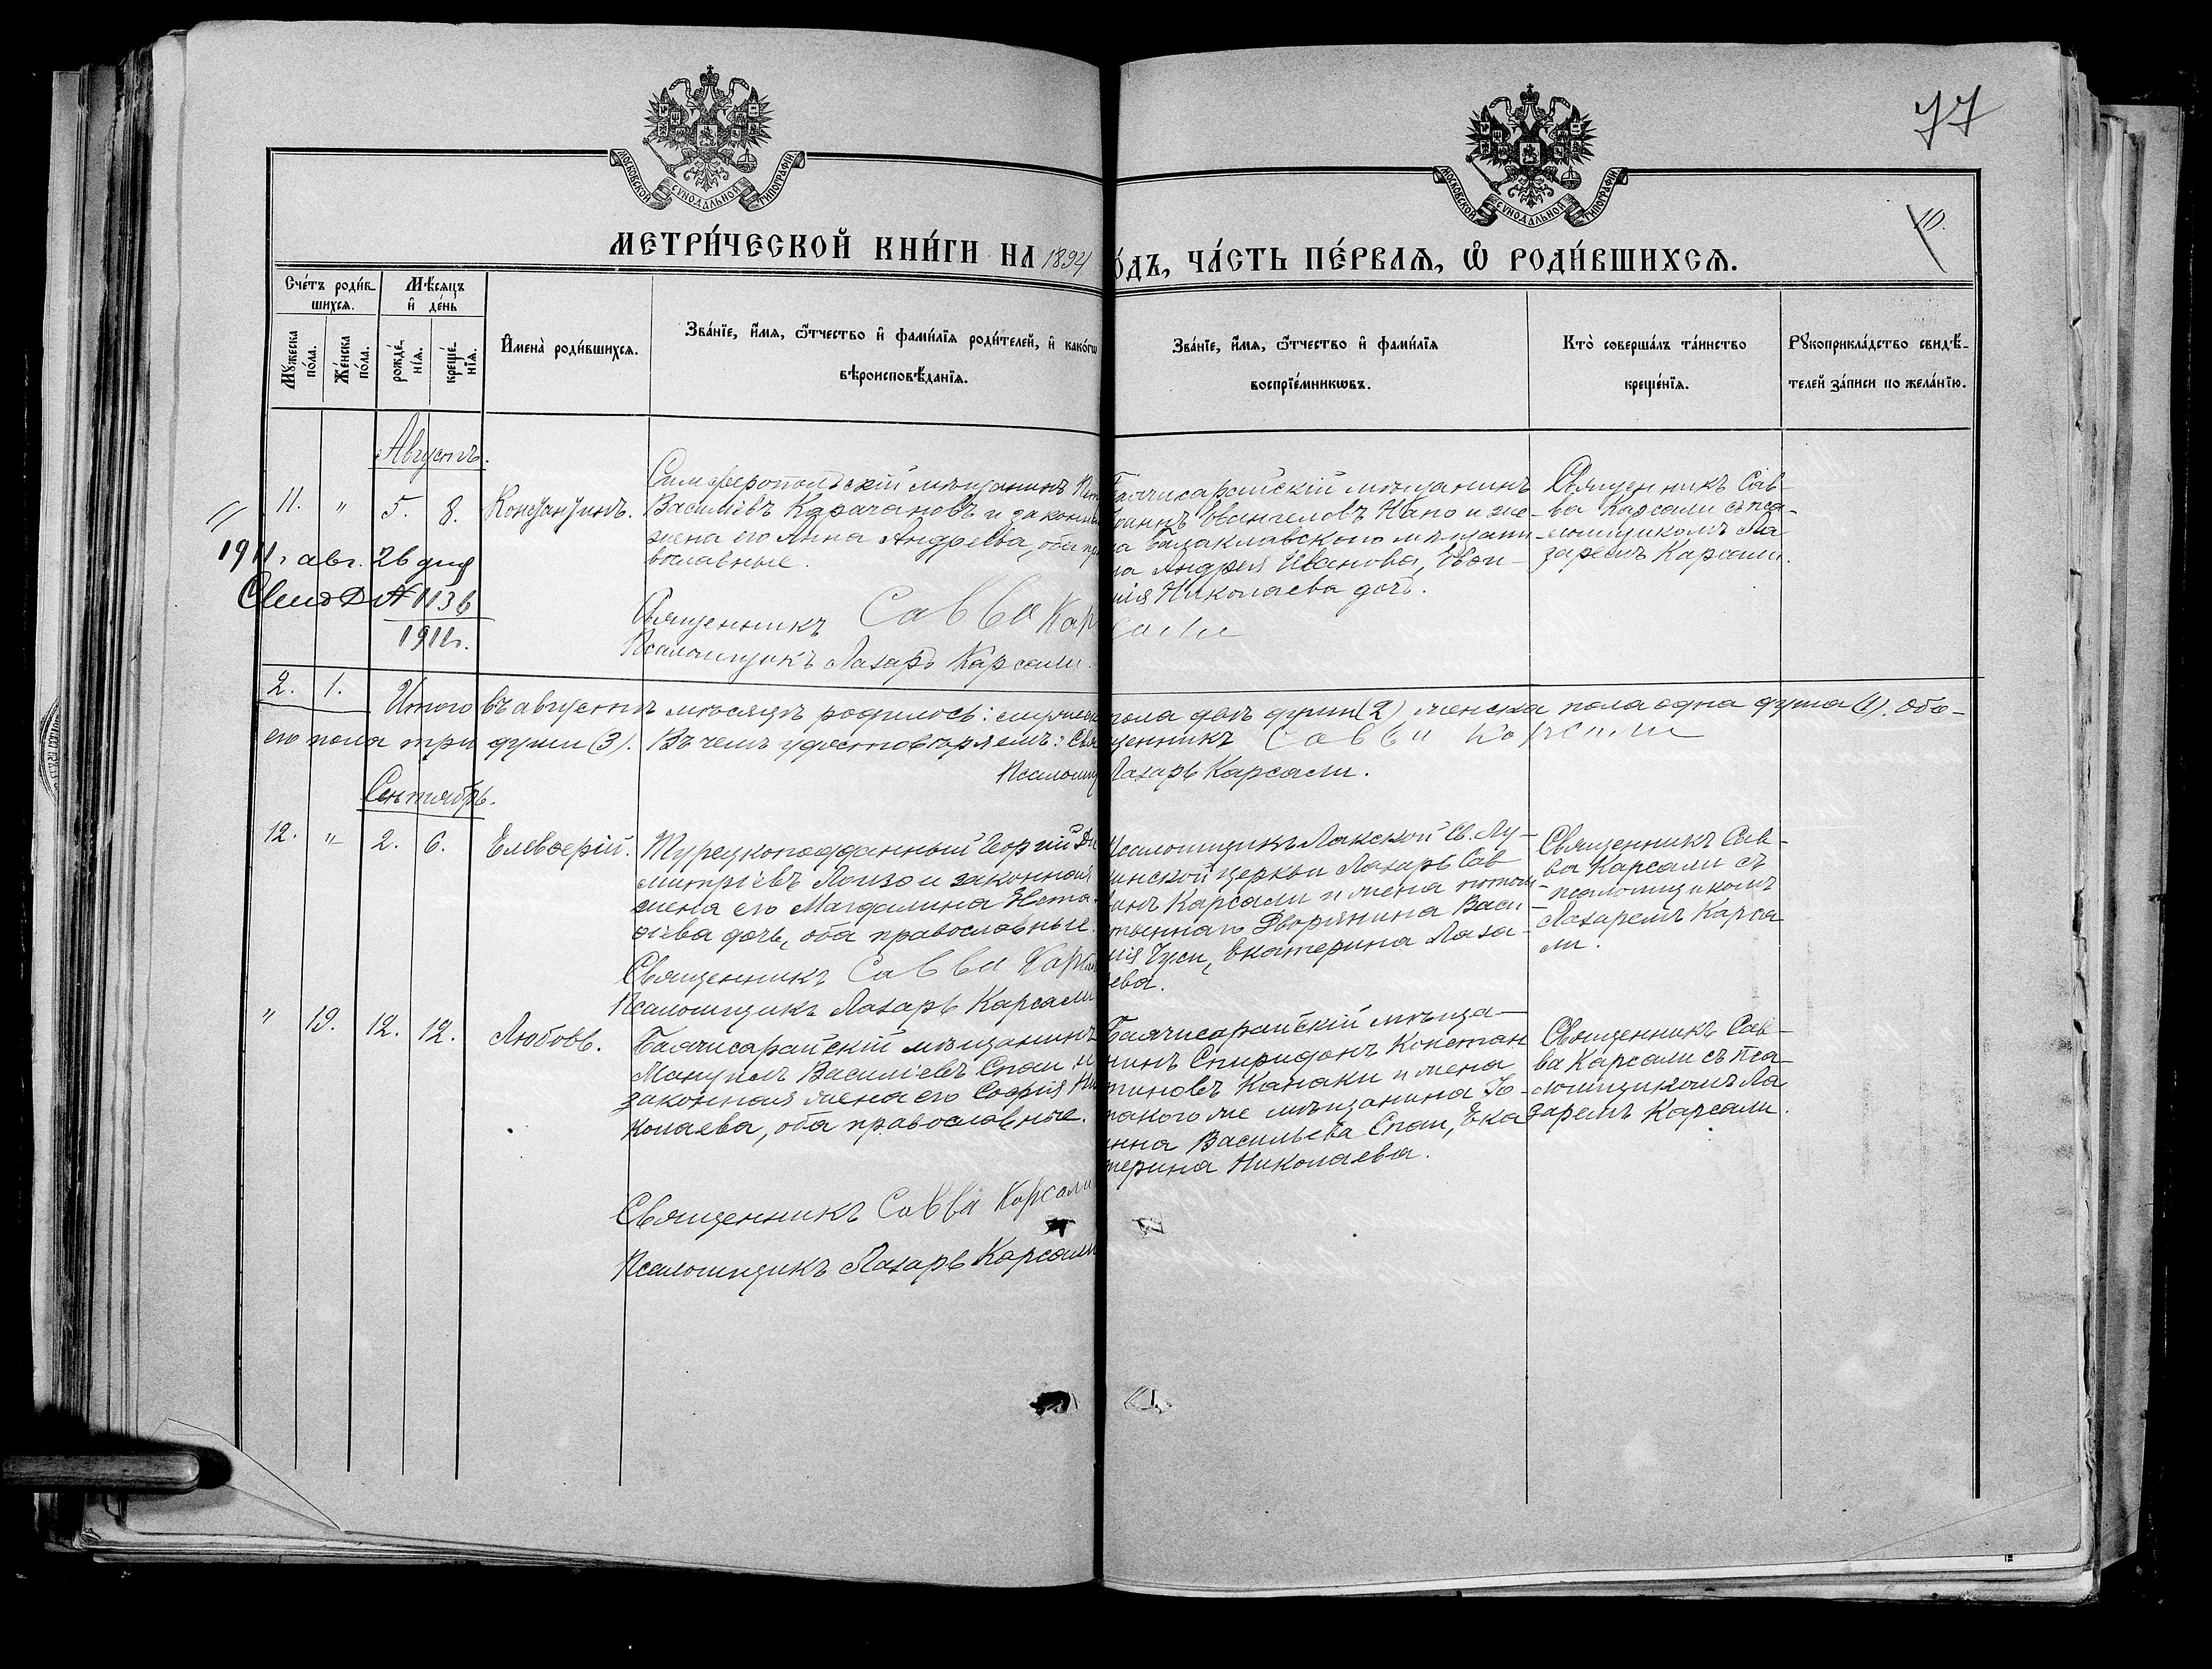 77
10.
МОСКОВСКОЙ СѴНОДАЛЬНОЙ ТИПОГРАФІИ
МОСКОВСКОЙ СѴНОДАЛЬНОЙ ТИПОГРАФІИ
МЕТРИ́ЧЕСКОЙ КНИ́ГИ НА 1894
О́ДЪ, ЧА́СТЬ ПЕ́РВАЯ, Ѡ҆ РОДИ́ВШИХСЯ.
Сче́тъ роди́в-
шихся.
Мꙋ́жеска по́ла.
Же́нска по́ла.
Мѣ́сяцъ
и҆ де́нь
рожде́-
нїя.
креще́-
нїя.
И҆мена̀ роди́вшихся.
Зва́нїе, и҆́мя, ѻ҆́тчество и҆ фами́лїя роди́телей, и҆ како́гѡ
вѣроисповѣ́данїя.
Зва́нїе, и҆́мя, ѻ҆́тчество и҆ фами́лїя
воспрїе́мникѡвъ.
Кто̀ соверша́лъ та́инство
креще́нїя.
Рꙋкоприкла́дство свидѣ́-
телей за́писи по жела́нїю.
Августъ.
11. " 5. 8. Константинъ.
Симферопольскій мѣщанинъ
Василіевъ Карачановъ и законн
жена его Анна Андреева, оба пр
вославные.
Священникъ Савва Кар
Псаломщикъ Лазарь Карсали.
Бахчисарайскій мѣщанинъ
Іоаннъ Евангеловъ Напо и же-
на Балаклавскаго мѣщани-
на Андрея Иванова,
Николаева дочь.
сали
Священникъ Сав-
ва Карсали съ пса-
ломщикомъ Ла
заремъ Карсали.
1911г. авг. 26 дня
№ 1136
1911г.
2. 1. Итого въ августѣ мѣсяцѣ родилось: мужеск пола двѣ души (2) женска пола одна душа (1). Обо-
его пола три души (3). Въ чемъ удостовѣряемъ: Свя щенникъ Савва Карсали
Псаломщ Лазарь Карсали.
Сентябрь.
12. " 2. 6. Елевѳерій.
Турецкоподданный Георгій Ди
митріевъ Лоизо и законная
жена его Магдалина
дочь, оба православные.
Священникъ Савва Карсал
Псаломщикъ Лазарь Карсали
Псаломщикъ Лакской Св. Лу-
кинской церкви Лазарь Сав
винъ Карсали и жена потом
ственнаго Дворянина Васи
лія Чуси, Екатерина Лаза-
рева.
Священникъ Сав-
ва Карсали съ
псаломщикомъ
Лазаремъ Карса
ли.
" 19. 12. 12. Любовь.
Бахчисарайскій мѣщанинъ
Мануилъ Василіевъ Спаи и
законная жена его Софія Ни
колаева, оба православные.
Священникъ Савва Карсали
Псаломщикъ Лазарь Карсали
Бахчисарайскій мѣща-
нинъ Спиридонъ Констан
тиновъ Канаки и жена
такого же мѣщанина Іо-
анна Васильева Спаи, Ека
терина Николаева.
Священникъ Сав-
ва Карсали съ пса-
ломщикомъ Ла
заремъ Карсали.